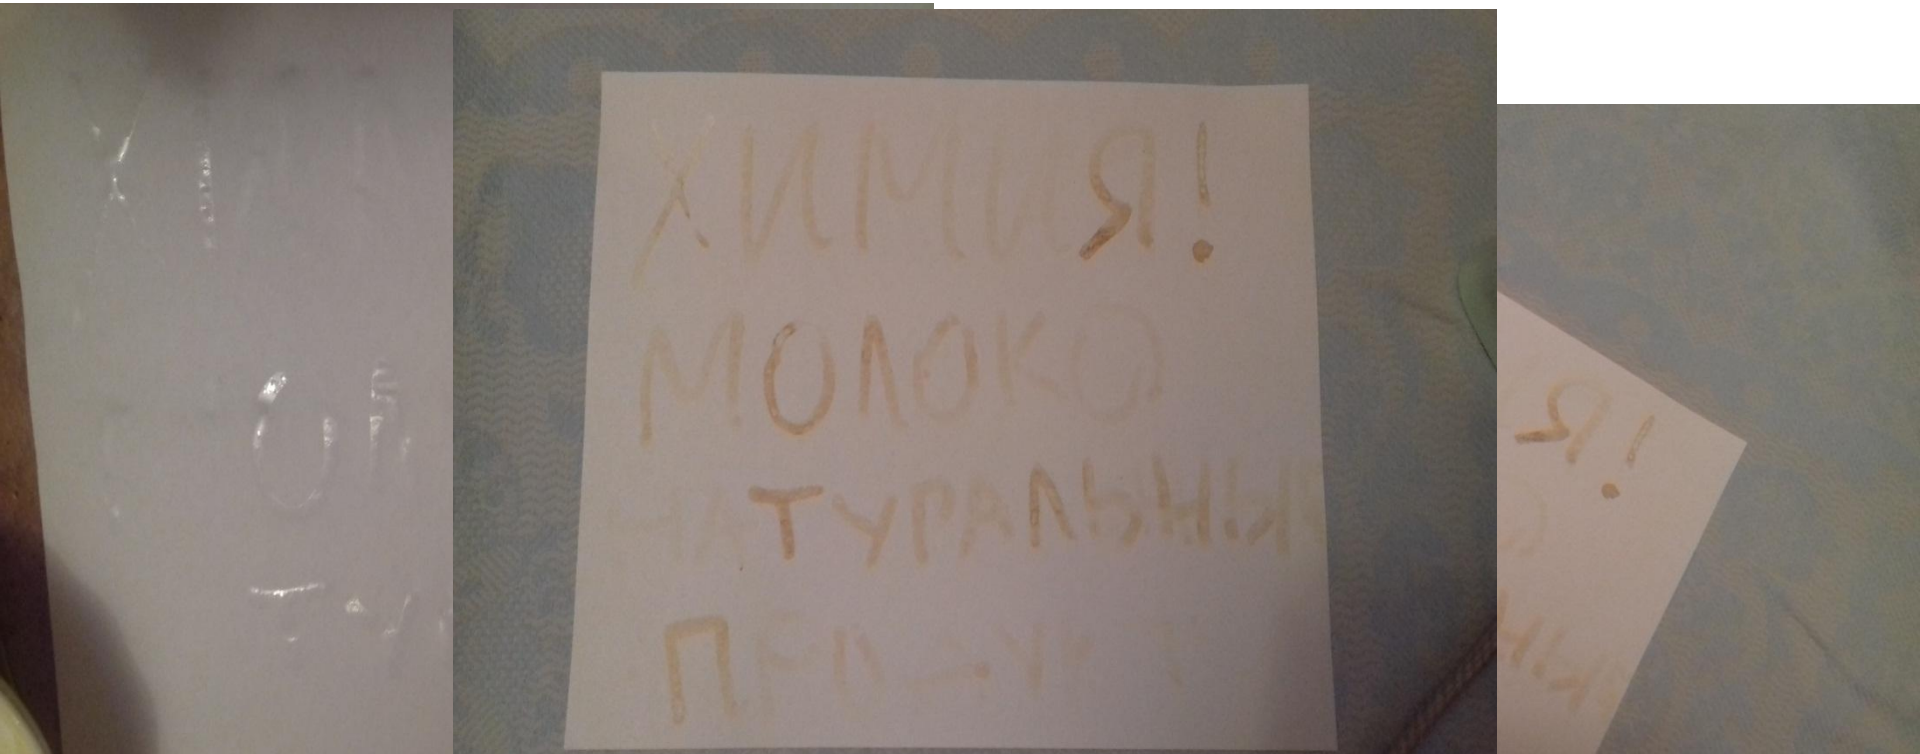 ХИМИЯ!
МОЛОКО
НАТУРАЛЬНЫЙ
ПРОДУКТ